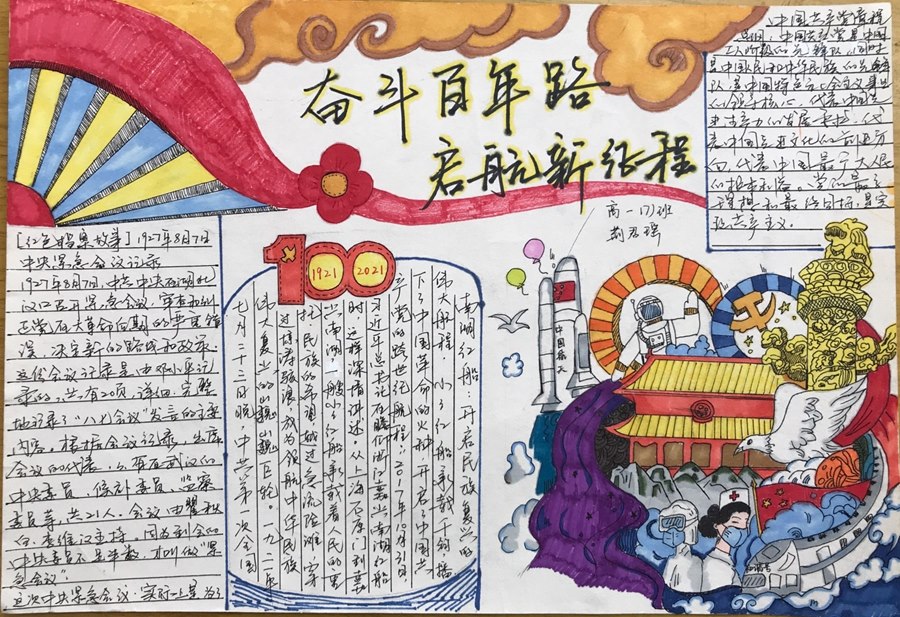 奋斗百年路
启航新征程
高一17)班
中国共产党章程
总纲：中国共产党是中国
工人阶级的先锋队，同时
是中国人民和中华民族的先锋
队，是中国特色社会主义事业
的领导核心，代表中国先
进生产力的发展要求，代
表中国先进文化的前进方
向，代表中国最广大人民
的根本利益。党的最高
理想和最终目标，是实
现共产主义。
[红色档案故事]1927年8月7日
中央紧急会议记录
1927年8月7日，中共中央在湖北
汉口召开紧急会议，审查和纠
正党在大革命后期的严重错
误，决定新的路线和政策。
这份会议记录是由邓小平记
录的，共有20页，详细、完整
地记录了“八七会议”发言的主要
内容。根据会议记录，出席
会议的代表
中央委员、候补委员、监察
委员等，共21人。会议由瞿秋
白、李维汉主持。因为到会的
中央委员不足半数，才叫做“紧
急会议”
这次中央紧急会议，实际上是为了
100
1921 2021
南湖红船：开启民族复兴的
伟大航程 小小红船承载千钧，播
下了中国革命的火种，开启了中国共
产党的跨世纪航程。2017年10月31日
习近平总书记在瞻仰浙江嘉兴南湖红船
时，这样深情讲述。从上海石库门到嘉
兴南湖，一艘小小红船承载着人民的重
托、民族的希望，越过急流险滩，穿
过惊涛骇浪，成为领航中华民族
伟大复兴的巍巍巨轮。一九二一年
七月二十三日晚，中共第一次全国
中国航天